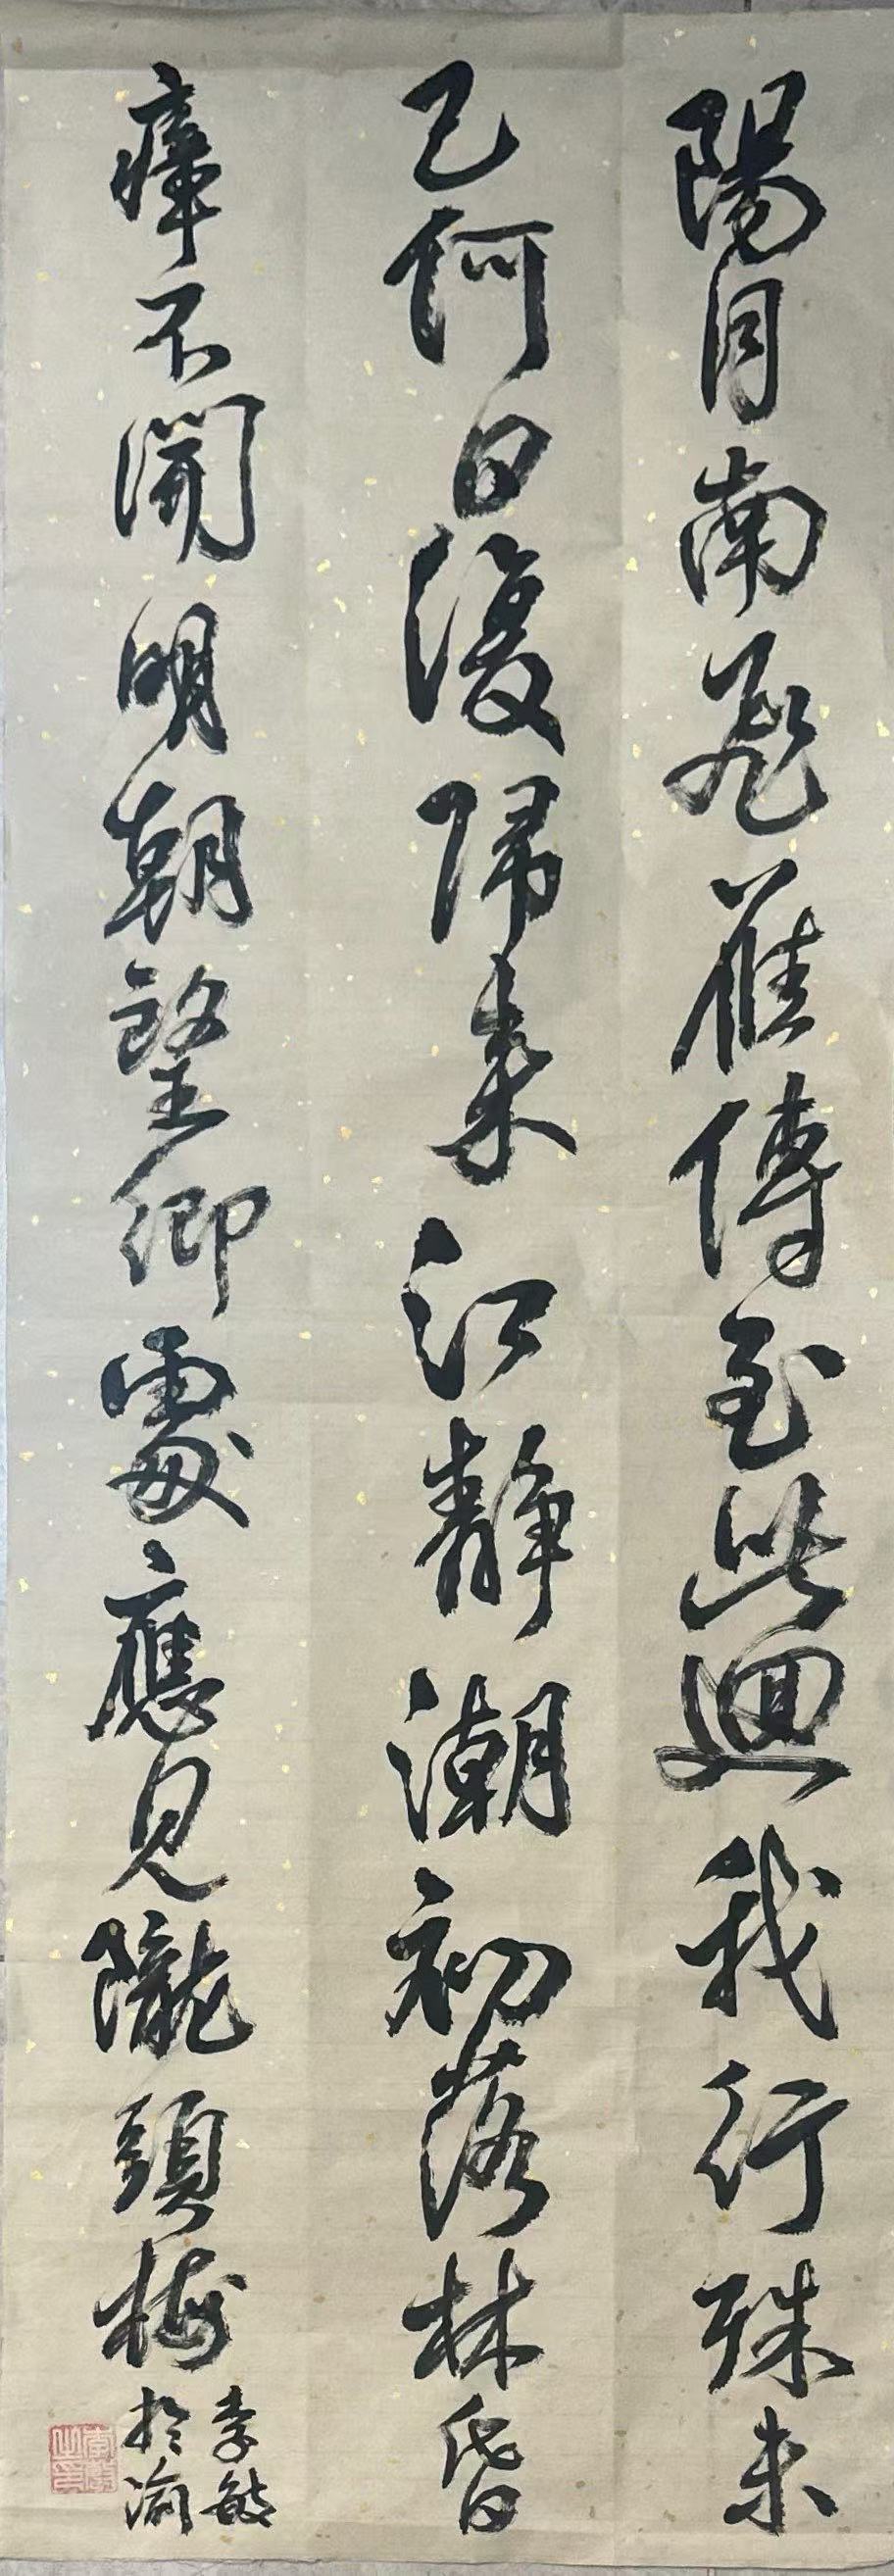 陽月南飛雁傳至此迴我行殊未
已何日復歸来江靜潮初落林昏
瘴不開明朝望鄉處應見隴頭梅
李敏
於渝